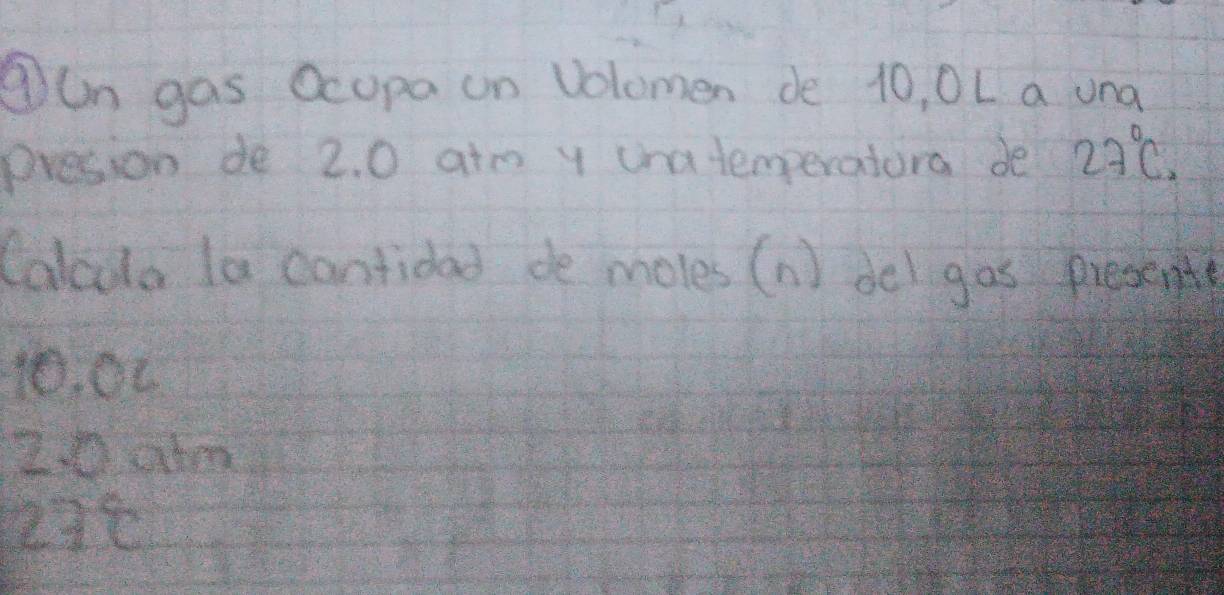 ⑨ Un gas Ocupa un Volumen de 10,0L a una
presion de 2.0 atm y una temperatura de 27°C.
Calcula la cantidad de moles (n) del gas presente
10.0L
2.0 atm
27°C